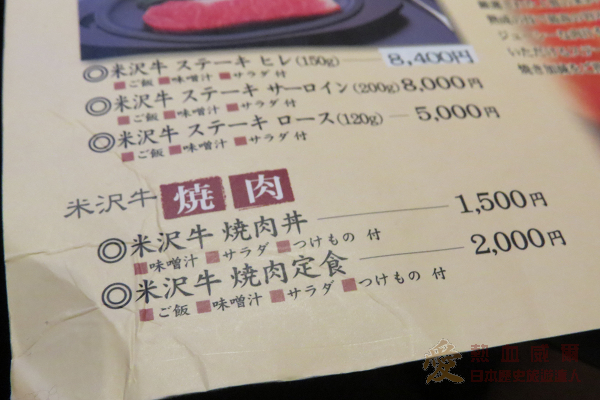 ◎米沢牛 ステーキ ヒレ(150g) 8,400円
■ご飯 ■味噌汁 ■サラダ 付
◎米沢牛 ステーキ サーロイン(200g) 8,000円
■ご飯 ■味噌汁 ■サラダ 付
◎米沢牛 ステーキ ロース(120g) — 5,000円
■ご飯 ■味噌汁 ■サラダ 付
米沢牛 焼肉
◎米沢牛 焼肉丼 — 1,500円
■味噌汁 ■サラダ ■つけもの 付
◎米沢牛 焼肉定食 — 2,000円
■ご飯 ■味噌汁 ■サラダ ■つけもの 付
愛